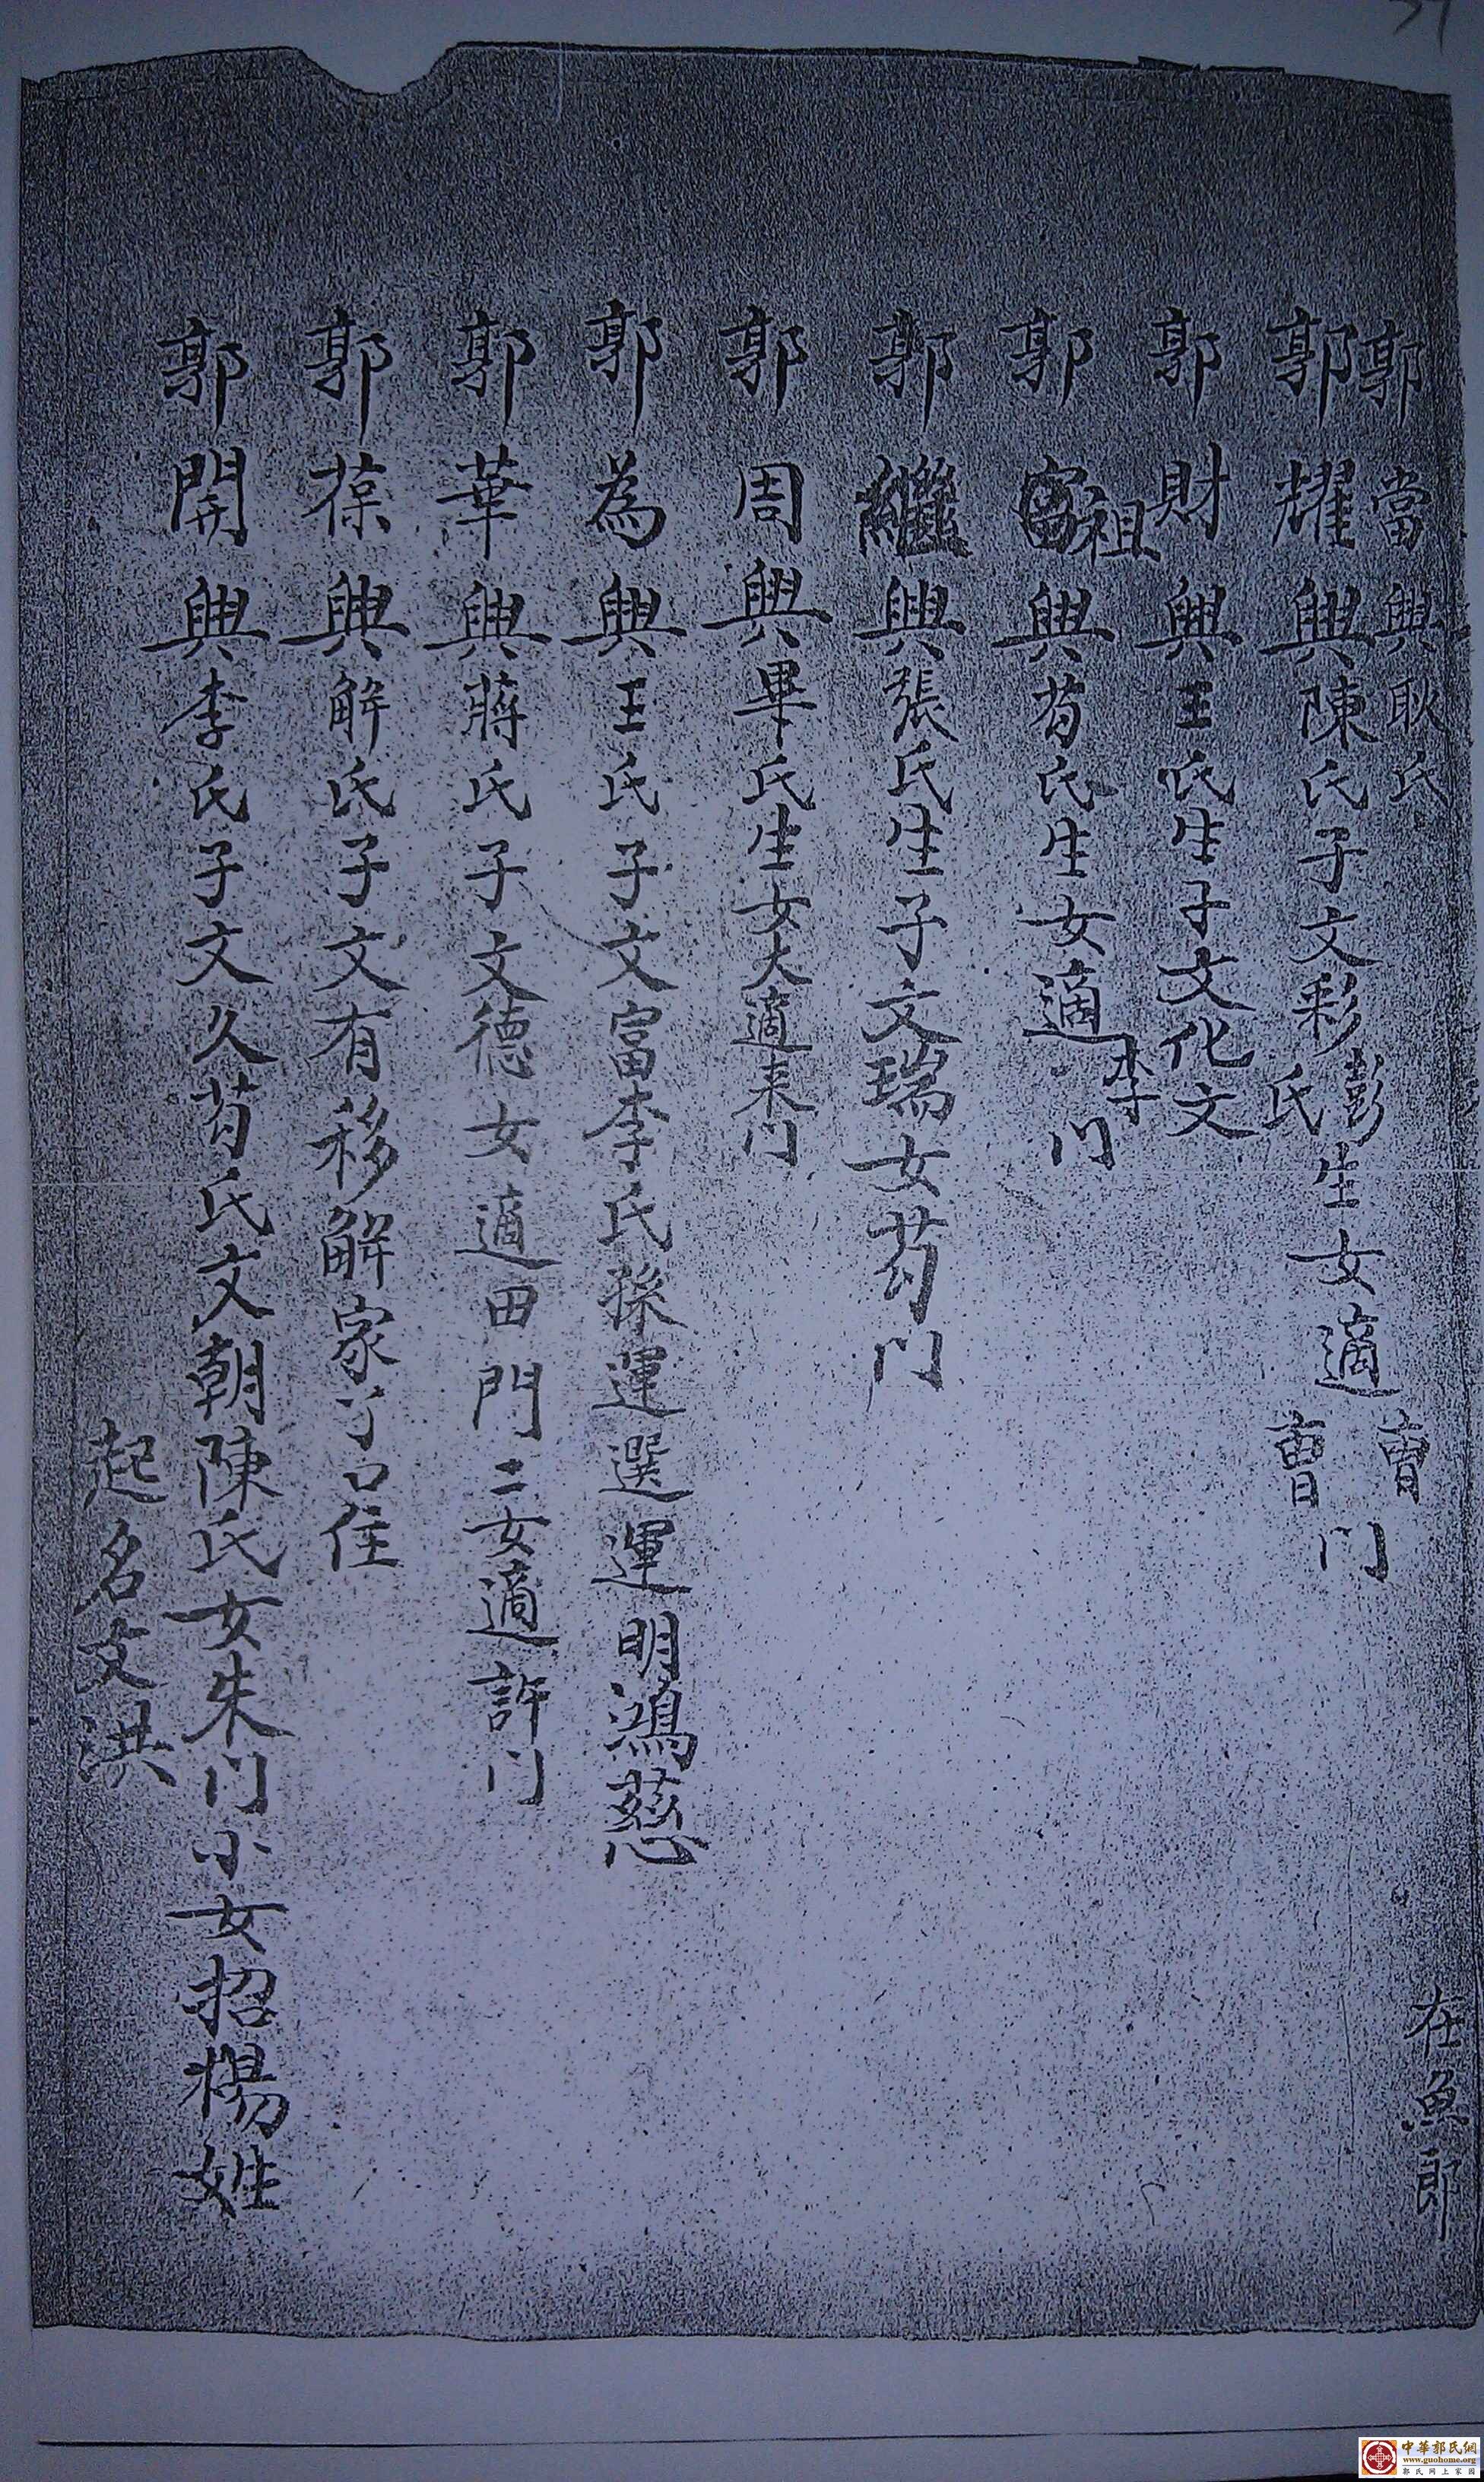 郭當興耿氏 在魚郎
郭耀興陳氏子文彩彭氏生女適曹曹门
郭財興王氏生子文化文
郭祖興芶氏生女適李门
郭繼興張氏生子文瑞女芶门
郭周興畢氏生女大適来门
郭為興王氏子文富李氏孫運選運明鴻慈
郭華興蔣氏子文德女適田門二女適許门
郭葆興解氏子文有移解家丫口住
郭開興李氏子文久芶氏文朝陳氏女朱门小女招楊姓
起名文洪
中華郭氏網
www.guohome.org
郭氏网上家园